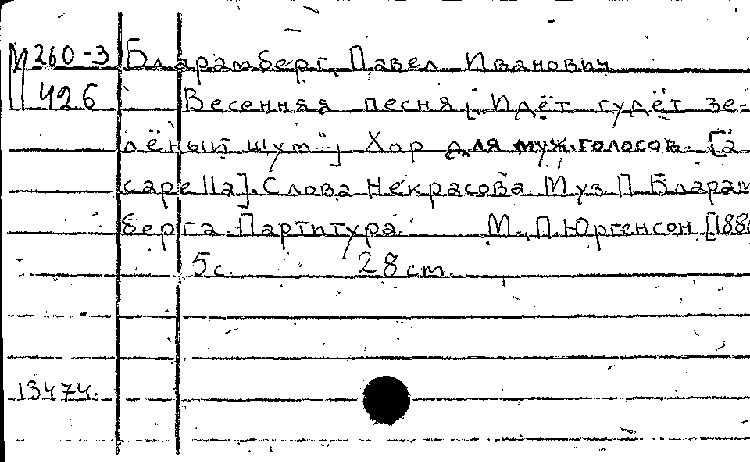 М 260-3 Бларамберг, Павел Иванович
426 Весенняя песня „Идёт гудёт зе-
лёный шум“, Хор для муж. голосов. [a
capella]. Слова Некрасова. Муз. П. Бларам
берга. Партитура. М., П. Юргенсон, [188
5 с. 28 cm.
13474.